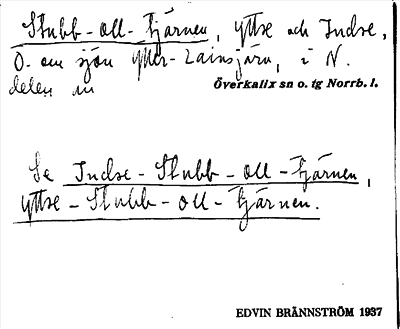 Stubb-oll-tjärnen, yttse och Indse,
O. om sjön Ytter-Lainsjärv, i N.
delen av
Överkalix sn o. tg Norrb. l.
Se Indse-Stubb-oll-tjärnen,
yttse-Stubb-oll-tjärnen.
EDVIN BRÄNNSTRÖM 1937